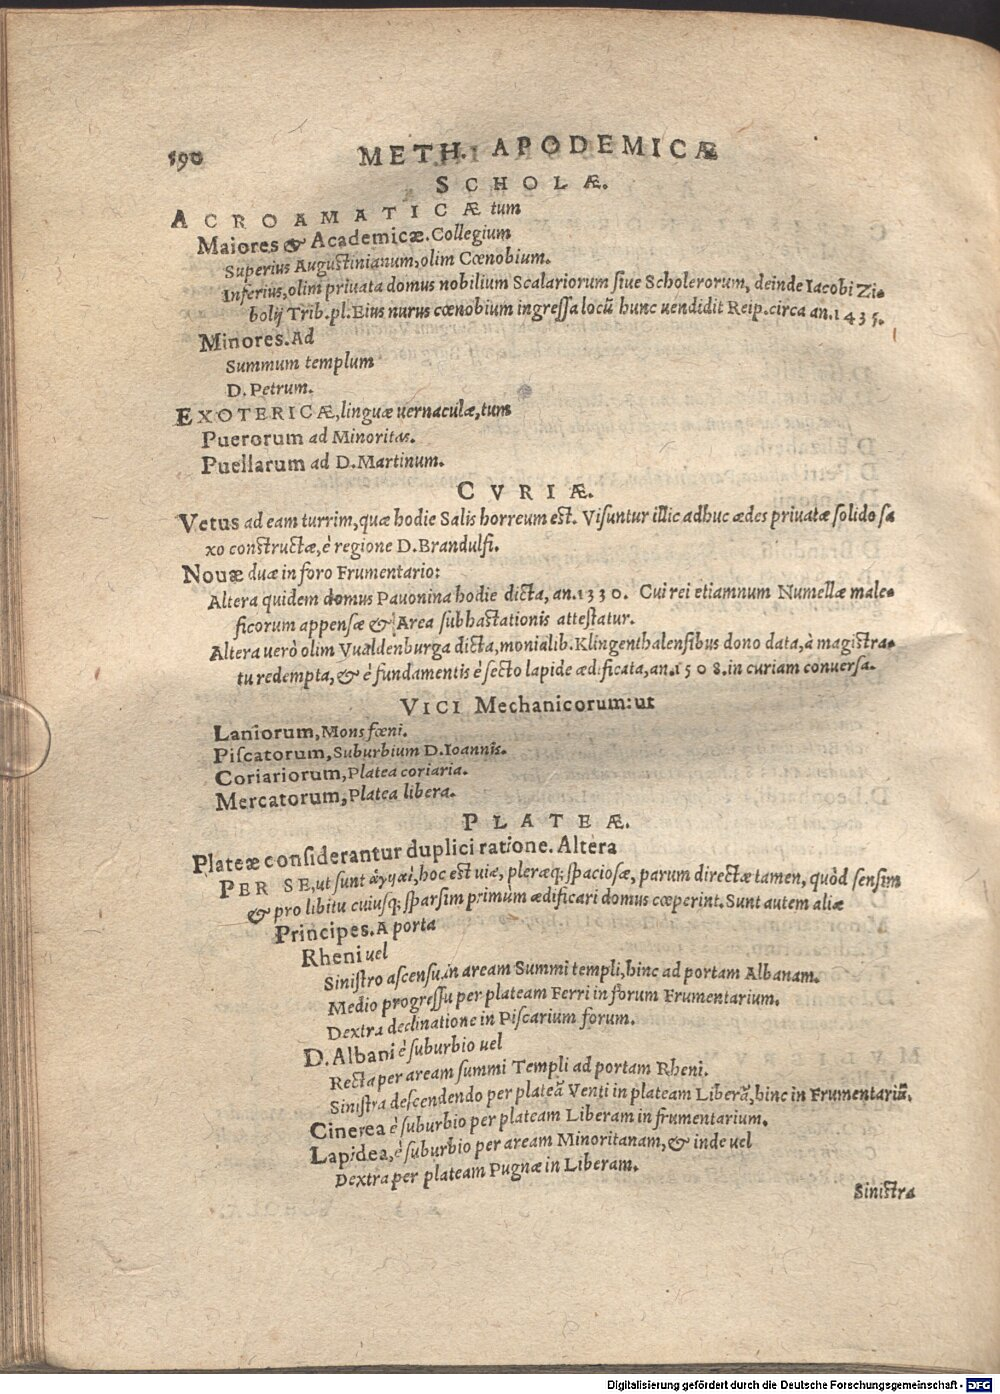 190 METH. APODEMICÆ
SCHOLÆ.
ACROAMATICÆ tum
Maiores & Academicæ. Collegium
Superius Augustinianum, olim Cœnobium.
Inferius, olim priuata domus nobilium Scalariorum siue Scholerorum, deinde Iacobi Zi-
bolij Trib. pl. Eius nurus cœnobium ingressa locũ hunc uendidit Reip. circa an. 1435.
Minores. Ad
Summum templum
D. Petrum.
EXOTERICÆ, linguæ uernaculæ, tum
Puerorum ad Minoritas.
Puellarum ad D. Martinum.
CVRIÆ.
Vetus ad eam turrim, quæ hodie Salis horreum est. Visuntur illic adhuc ædes priuatæ solido sa
xo constructæ, è regione D. Brandulfi.
Nouæ duæ in foro Frumentario:
Altera quidem domus Pauonina hodie dicta, an. 1330. Cui rei etiamnum Numellæ male-
ficorum appensæ & Area subhastationis attestatur.
Altera uerò olim Vualdenburga dicta, monialib. Klingenthalensibus dono data, à magistra-
tu redempta, & è fundamentis è secto lapide ædificata, an. 1508. in curiam conuersa.
VICI Mechanicorum: ut
Laniorum, Mons fœni.
Piscatorum, Suburbium D. Ioannis.
Coriariorum, Platea coriaria.
Mercatorum, Platea libera.
PLATEÆ.
Plateæ considerantur duplici ratione. Altera
PER SE, ut sunt ἀγυιαὶ, hoc est uiæ, pleræq; spaciosæ, parum directæ tamen, quòd sensim
& pro libitu cuiusq; sparsim primùm ædificari domus cœperint. Sunt autem aliæ
Principes. A porta
Rheni uel
Sinistro ascensu in aream Summi templi, hinc ad portam Albanam.
Medio progressu per plateam Ferri in forum Frumentarium.
Dextra declinatione in Piscarium forum.
D. Albani è suburbio uel
Recta per aream summi Templi ad portam Rheni.
Sinistra descendendo per plateã Venti in plateam Liberã, hinc in Frumentariũ.
Cinerea è suburbio per plateam Liberam in frumentarium.
Lapidea, è suburbio per aream Minoritanam, & inde uel
Dextra per plateam Pugnæ in Liberam.
Sinistra
Digitalisierung gefördert durch die Deutsche Forschungsgemeinschaft - DFG